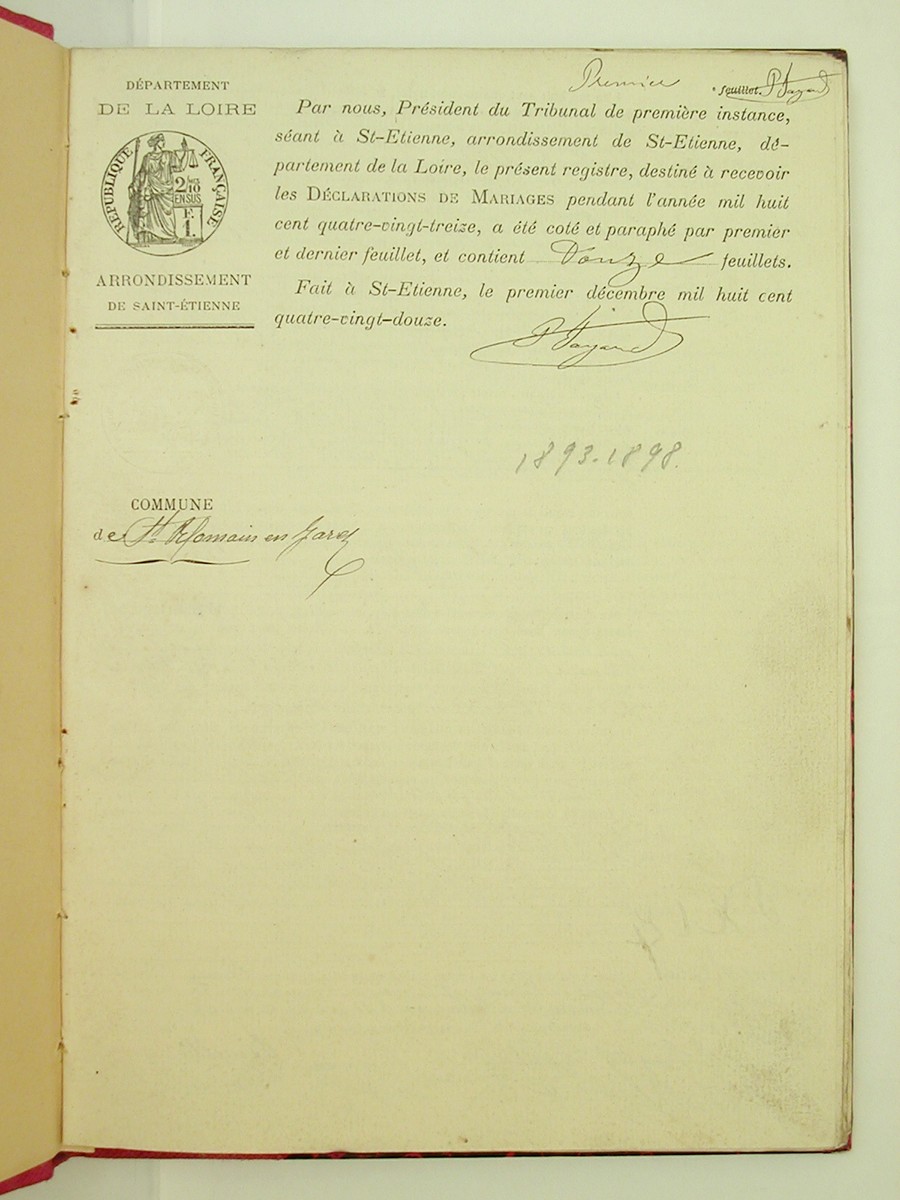 Premier feuillet. P. Fayard
DÉPARTEMENT
DE LA LOIRE
RÉPUBLIQUE FRANÇAISE
2/10
EN SUS
F.
1.
ARRONDISSEMENT
DE SAINT-ÉTIENNE
Par nous, Président du Tribunal de première instance,
séant à St-Etienne, arrondissement de St-Etienne, dé-
partement de la Loire, le présent registre, destiné à recevoir
les DÉCLARATIONS DE MARIAGES pendant l'année mil huit
cent quatre-vingt-treize, a été coté et paraphé par premier
et dernier feuillet, et contient Douze feuillets.
Fait à St-Etienne, le premier décembre mil huit cent
quatre-vingt-douze.
P. Fayard
1893-1898.
COMMUNE
de St Romain en Jarez